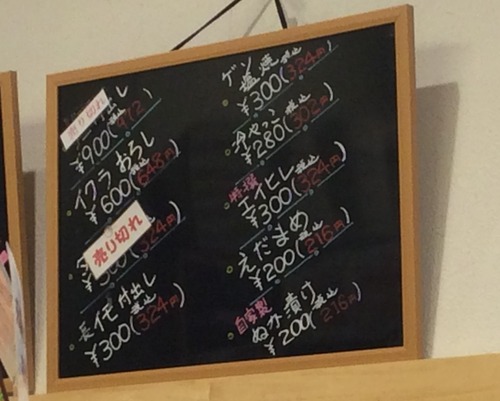 売り切れ
出し
¥900(税込972)
イクラおろし
¥600(税込648円)
売り切れ
¥300(税込324円)
長イモ付出し
¥300(税込324円)
ゲソ
塩焼
¥300(税込324円)
冷やっこ
¥280(税込302円)
特撰
エイヒレ
¥300(税込324円)
えだまめ
¥200(税込216円)
自家製
ぬか漬け
¥200(税込216円)